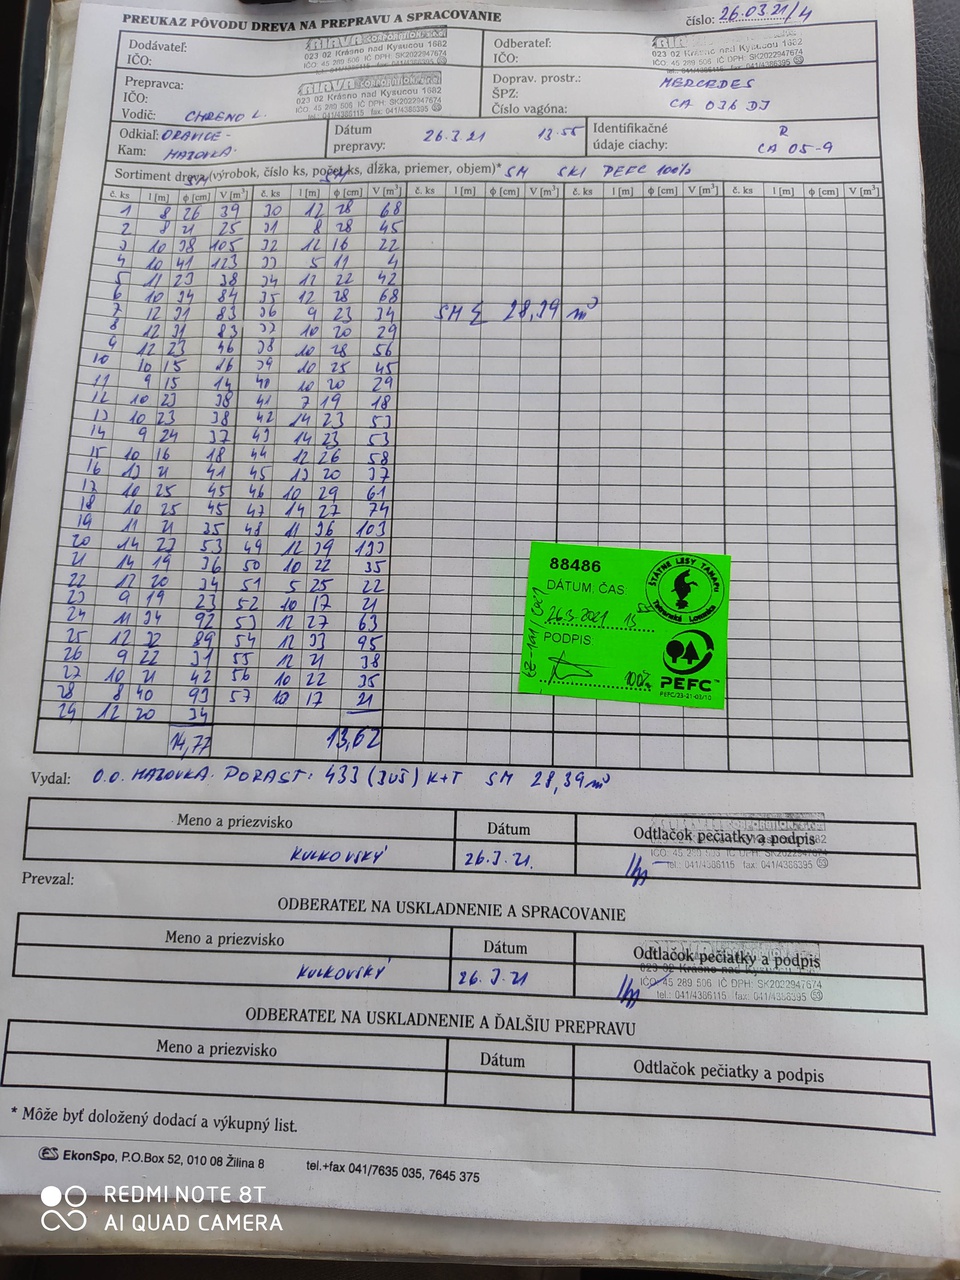 PREUKAZ PÔVODU DREVA NA PREPRAVU A SPRACOVANIE číslo: 26.03.21/4
Dodávateľ: CORPORATION, s.r.o. Odberateľ:
IČO: 023 02 Krásno nad Kysucou 1682 IČO: Krásno nad Kysucou 1682
IČO: 45 289 506 IČ DPH: SK2022947674
Prepravca: Doprav. prostr.: MERCEDES
IČO: 023 02 Krásno nad Kysucou 1682 ŠPZ: CA 036 DJ
IČO: 45 289 506 IČ DPH: SK2022947674
Vodič: CHRENO L. tel.: 041/4386115 fax: 041/4386395 Číslo vagóna:
Odkiaľ: ORAVICE - Dátum 26.3.21 13.55 Identifikačné R
Kam: HAZOVKA prepravy: údaje ciachy: CA 05-9
Sortiment dreva (výrobok, číslo ks, počet ks, dĺžka, priemer, objem)* SM SKI PEFC 100%
SM SM
č. ks l [m] ϕ [cm] V [m³] č. ks l [m] ϕ [cm] V [m³] č. ks l [m] ϕ [cm] V [m³] č. ks l [m] ϕ [cm] V [m³] č. ks l [m] ϕ [cm] V [m³]
1 8 26 39 30 12 28 68
2 8 21 25 31 8 28 45
3 10 38 105 32 12 16 22
4 10 41 123 33 5 11 4
5 11 23 38 34 12 22 42
6 10 34 84 35 12 28 68
7 12 31 83 36 9 23 34 SM Σ 28,39 m³
8 12 31 83 37 10 20 29
9 12 23 46 38 10 28 56
10 10 15 16 39 10 25 45
11 9 15 14 40 10 20 29
12 10 23 38 41 7 19 18
13 10 23 38 42 14 23 53
14 9 24 37 43 14 23 53
15 10 16 18 44 12 26 58
16 13 21 41 45 13 20 37
17 10 25 45 46 10 29 61
18 10 25 45 47 14 27 74
19 11 21 35 48 11 36 103
20 14 23 53 49 12 39 133
21 14 19 36 50 10 22 35
22 12 20 34 51 5 25 22
23 9 19 23 52 10 17 21
24 11 34 92 53 12 27 63
25 12 32 89 54 12 33 95
26 9 22 31 55 12 21 38
27 10 21 42 56 10 22 35
28 8 40 93 57 10 17 21
29 12 20 34
14,77 13,62
88486
DÁTUM, ČAS
26.3.2021
PODPIS:
100%
ŠTÁTNE LESY TANAPu
Tatranská Lomnica
PEFC™
PEFC/23-21-03/10
Vydal: O.O. HAZOVKA. PORAST: 433 (JUŠ) K+T SM 28,39 m³
Meno a priezvisko Dátum Odtlačok pečiatky a podpis
KULKOVSKÝ 26.3.21. IČO: 45 289 506 IČ DPH: SK2022947674
tel.: 041/4386115 fax: 041/4386395
Prevzal:
ODBERATEĽ NA USKLADNENIE A SPRACOVANIE
Meno a priezvisko Dátum Odtlačok pečiatky a podpis
023 02 Krásno nad Kysucou
KULKOVSKÝ 26.3.21 IČO: 45 289 506 IČ DPH: SK2022947674
tel.: 041/4386115 fax: 041/4386395
ODBERATEĽ NA USKLADNENIE A ĎALŠIU PREPRAVU
Meno a priezvisko Dátum Odtlačok pečiatky a podpis
* Môže byť doložený dodací a výkupný list.
ES EkonSpo, P.O.Box 52, 010 08 Žilina 8 tel.+fax 041/7635 035, 7645 375
REDMI NOTE 8T
AI QUAD CAMERA